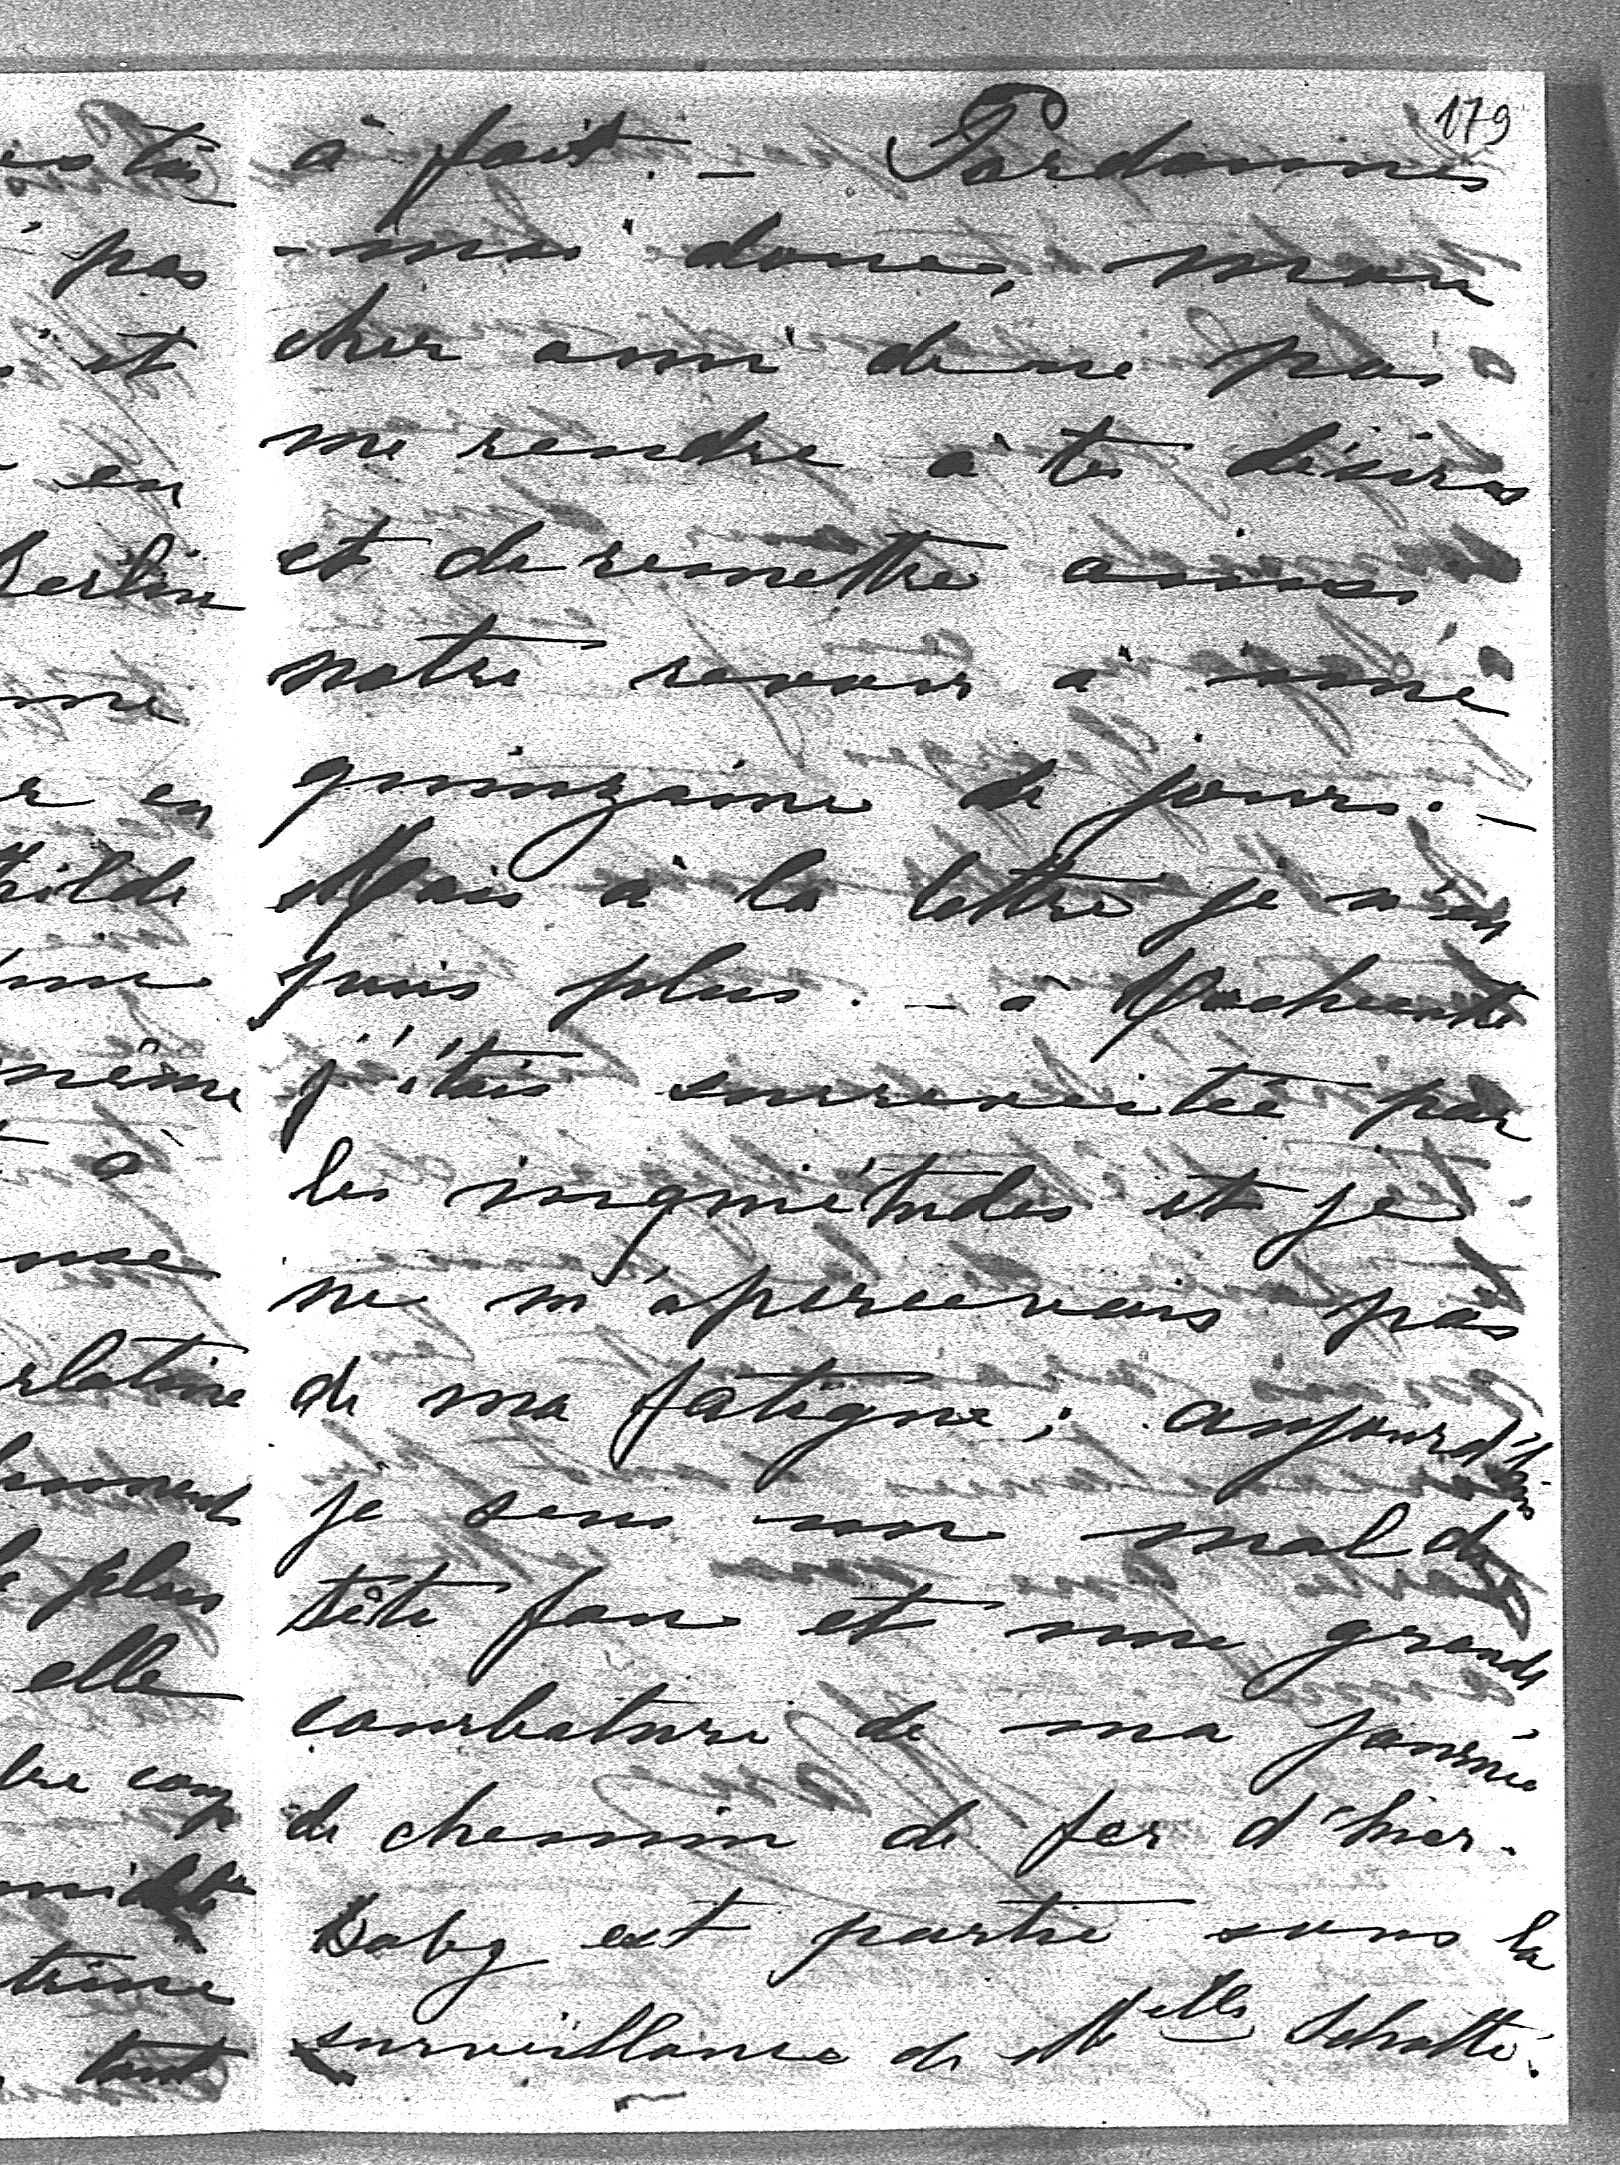 179
à fait. — Pardonnes
-moi donc, mon
cher ami de ne pas
me rendre à tes désires
et de remettre ainsi
notre revoir à une
quinzaine de jours. —
Mais à la lettre je n'en
puis plus. — à
j'étais surexcitée par
les inquiétudes et je
ne m'apercevais pas
de ma fatigue; aujourd'hui
je sens un mal de
tête fou et une grande
courbature de ma journée
de chemin de fer d'hier.
Baby est partie sous la
surveillance de Melle
tu
pas
et
en
Berlin
en
même
à
plus
elle
tant